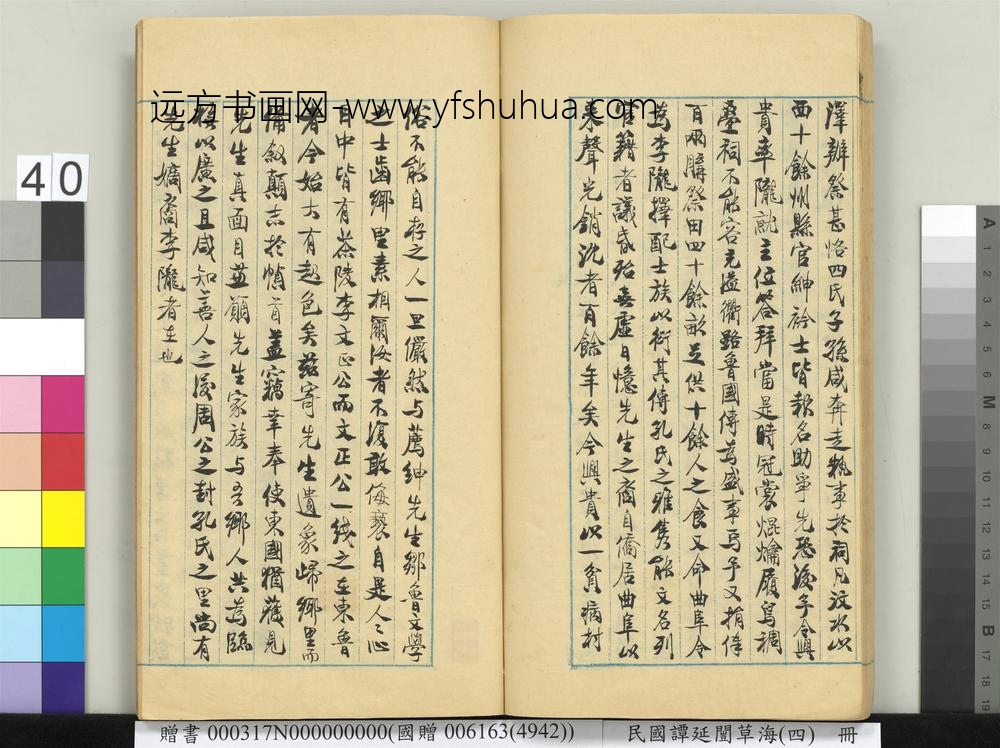 远方书画网-www.yfshuhua.com
澤辦祭甚恪四氏子孫咸奔走執事於祠凡汶水以
西十餘州縣官紳衿士皆報名助爭先恐後予令興
貴率隴就主位答拜當是時冠裳焜爚履舄稠
疊祠不能容充溢衢路魯國傳為盛事焉予又捐俸
百兩購祭田四十餘畝足供十餘人之食又命曲阜令
為李隴擇配士族以衍其傳孔氏之雅雋能文名列
賢籍者議昏殆無虛日憶先生之裔自僑居曲阜以
來聲光銷沈者百餘年矣今興貴以一貧病村
俗不能自存之人一旦儼然与薦紳先生鄒魯文學
之士齒鄉里素相爾汝者不復敢侮褻自是人々心
目中皆有茶陵李文正公而文正公一线之在東魯
者今始大有起色矣茲寄先生遺象歸鄉里而
備敘顛末於幀首蓋竊幸奉使東國猶獲見
先生真面目並願先生家族与吾鄉人共為臨
橅以廣之且咸知善人之後周公之封孔氏之里尚有
先生嫡裔李隴者在也
40
贈書 000317N000000000(國贈 006163(4942))
民國譚延闓草海(四) 冊
A 1 2 3 4 5 6 M 8 9 10 11 12 13 14 15 B 17 18 19